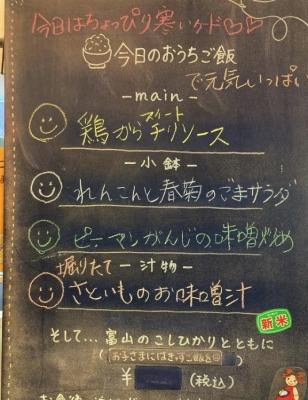 今日はちょっぴり寒いケド♡♡
今日のおうちご飯
で元気いっぱい
-main-
スイート
鶏からチリソース
-小鉢-
れんこんと春菊のごまサラダ
ピーマンがんじの味噌炒め
掘りたて -汁物-
さといものお味噌汁
新米
そして…富山のこしひかりとともに
￥ (税込)